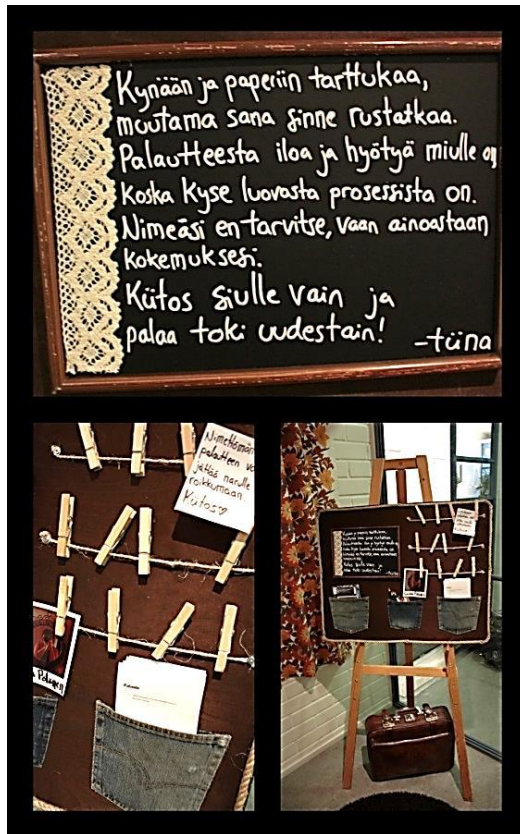 Kynään ja paperiin tarttukaa,
muutama sana sinne rustatkaa.
Palautteesta iloa ja hyötyä miulle on,
koska kyse luovasta prosessista on.
Nimeäsi en tarvitse, vaan ainoastaan
kokemuksesi.
Kiitos siulle vain ja
palaa toki uudestain!
-tiina
Nimettömän
palautteen vo
jättää narulle
roikkumaan.
Kiitos♡